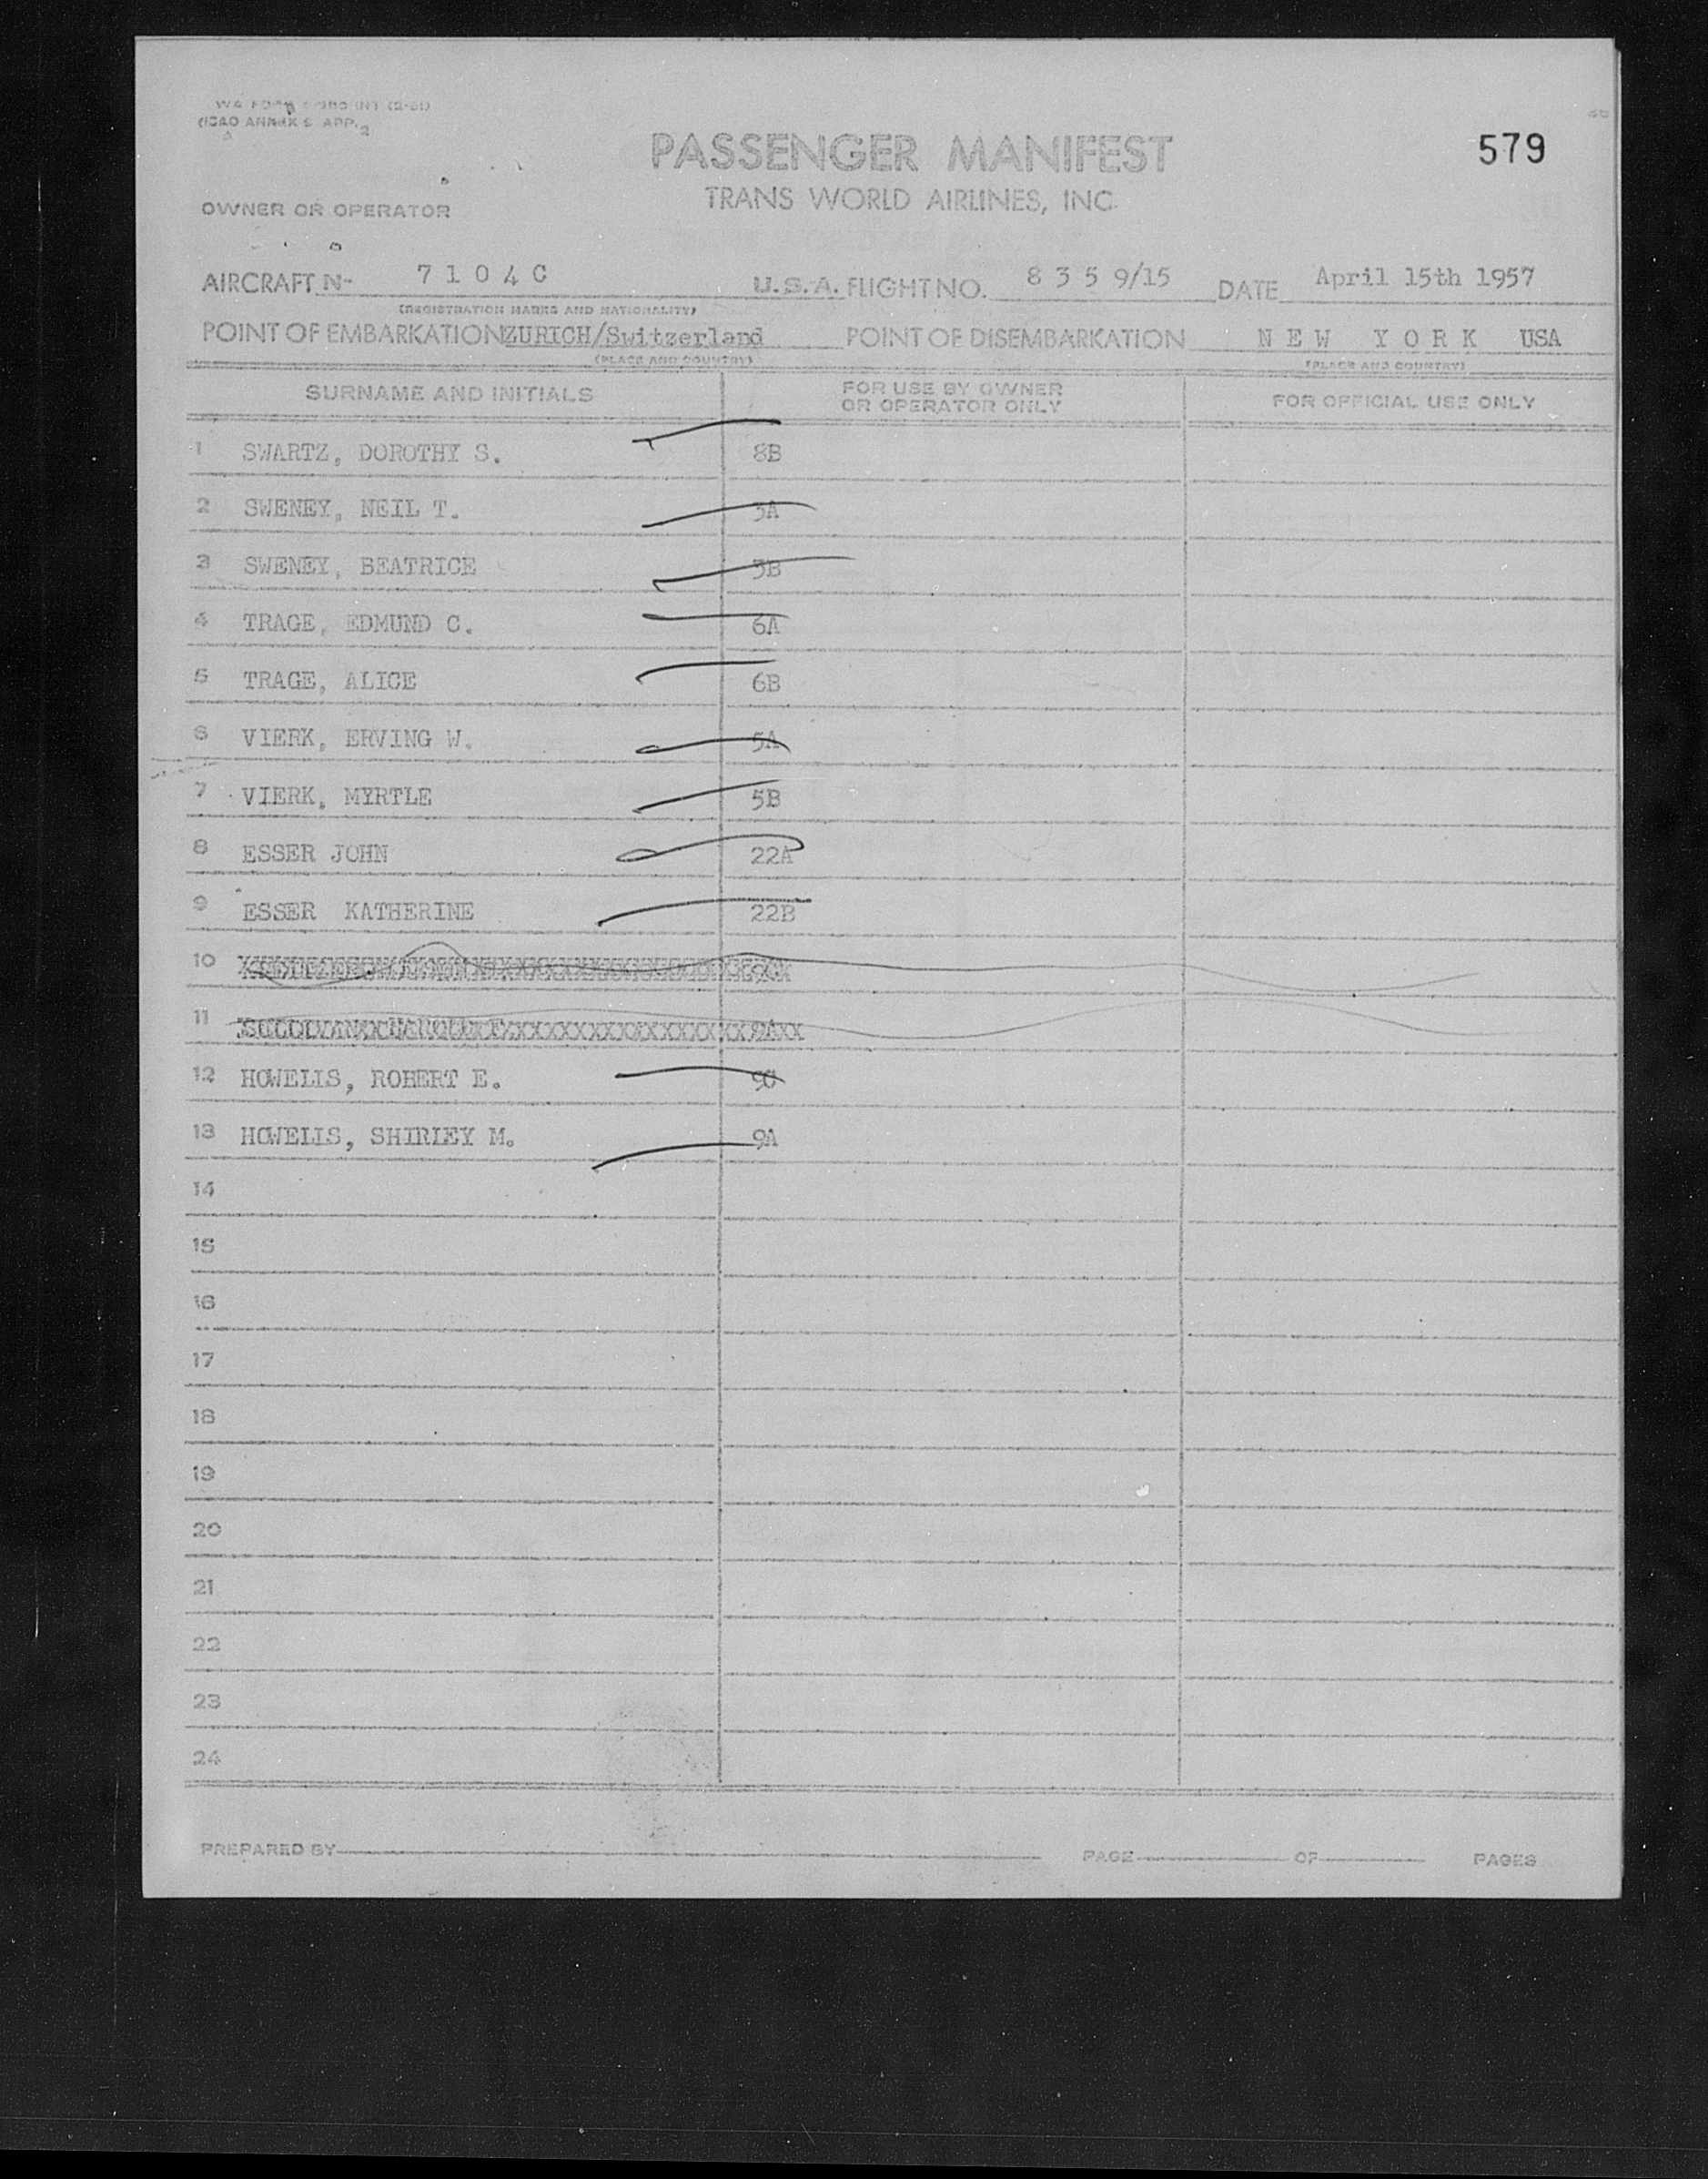 (ICAO ANNEX 9 APP. 2
PASSENGER MANIFEST
579
TRANS WORLD AIRLINES, INC.
OWNER OR OPERATOR
AIRCRAFT N- 7 1 0 4 C U.S.A. FLIGHT NO. 8 3 5 9/15 DATE April 15th 1957
(REGISTRATION MARKS AND NATIONALITY)
POINT OF EMBARKATION ZURICH/Switzerland POINT OF DISEMBARKATION N E W Y O R K USA
(PLACE AND COUNTRY) (PLACE AND COUNTRY)
SURNAME AND INITIALS FOR USE BY OWNER OR OPERATOR ONLY FOR OFFICIAL USE ONLY
1 SWARTZ, DOROTHY S. 8B
2 SWENEY, NEIL T. 3A
3 SWENEY, BEATRICE 3B
4 TRAGE, EDMUND C. 6A
5 TRAGE, ALICE 6B
6 VIERK, ERVING W. 5A
7 VIERK, MYRTLE 5B
8 ESSER JOHN 22A
9 ESSER KATHERINE 22B
10
11
12 HOWELLS, ROBERT E. 9C
13 HOWELLS, SHIRLEY M. 9A
14
15
16
17
18
19
20
21
22
23
24
PREPARED BY PAGE OF PAGES